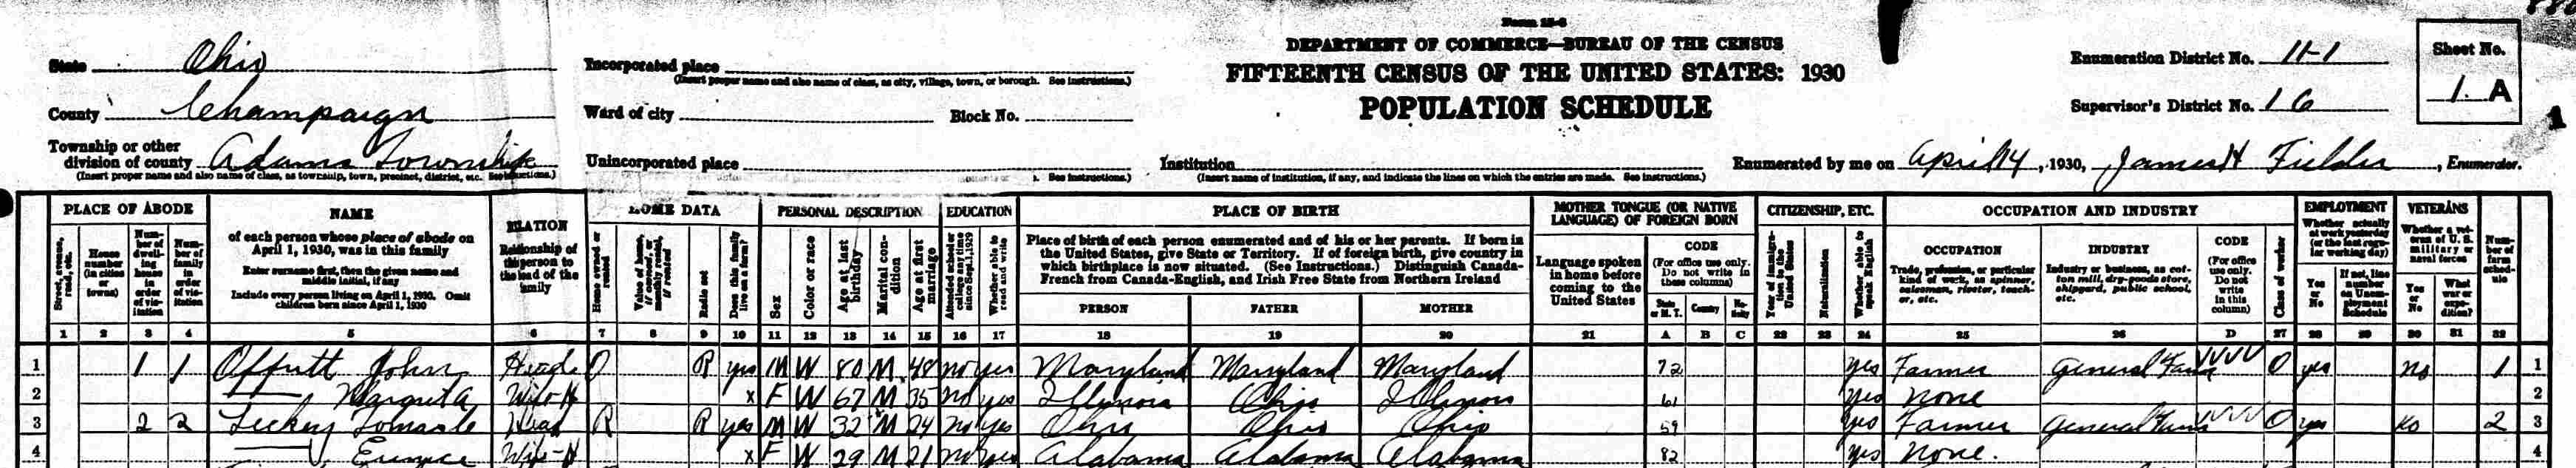 Form 15-6
State Ohio
County Champaign
Township or other division of county Adams Township
(Insert proper name and also name of class, as township, town, precinct, district, etc. See instructions.)
Incorporated place
(Insert proper name and also name of class, as city, village, town, or borough. See instructions.)
Ward of city Block No.
Unincorporated place
See instructions.)
DEPARTMENT OF COMMERCE—BUREAU OF THE CENSUS
FIFTEENTH CENSUS OF THE UNITED STATES: 1930
POPULATION SCHEDULE
Institution
(Insert name of institution, if any, and indicate the lines on which the entries are made. See instructions.)
Enumeration District No. 11-1
Supervisor's District No. 16
Sheet No.
1 A
1
Enumerated by me on April 14, 1930, James H Fielder, Enumerator.
PLACE OF ABODE
Street, avenue, road, etc.
House number (in cities or towns)
Number of dwelling house in order of visitation
Number of family in order of visitation
NAME
of each person whose place of abode on April 1, 1930, was in this family
Enter surname first, then the given name and middle initial, if any
Include every person living on April 1, 1930. Omit children born since April 1, 1930
RELATION
Relationship of this person to the head of the family
HOME DATA
Home owned or rented
Value of home, if owned, or monthly rental, if rented
Radio set
Does this family live on a farm?
PERSONAL DESCRIPTION
Sex
Color or race
Age at last birthday
Marital condition
Age at first marriage
EDUCATION
Attended school or college any time since Sept. 1, 1929
Whether able to read and write
PLACE OF BIRTH
Place of birth of each person enumerated and of his or her parents. If born in the United States, give State or Territory. If of foreign birth, give country in which birthplace is now situated. (See Instructions.) Distinguish Canada-French from Canada-English, and Irish Free State from Northern Ireland
PERSON FATHER MOTHER
MOTHER TONGUE (OR NATIVE LANGUAGE) OF FOREIGN BORN
Language spoken in home before coming to the United States
CODE
(For office use only. Do not write in these columns)
State or M. T.
Country
Nativity
CITIZENSHIP, ETC.
Year of immigration to the United States
Naturalization
Whether able to speak English
OCCUPATION AND INDUSTRY
OCCUPATION
Trade, profession, or particular kind of work, as spinner, salesman, riveter, teacher, etc.
INDUSTRY
Industry or business, as cotton mill, dry-goods store, shipyard, public school, etc.
CODE
(For office use only. Do not write in this column)
Class of worker
EMPLOYMENT
Whether actually at work yesterday (or the last regular working day)
Yes or No
If not, line number on Unemployment Schedule
VETERANS
Whether a veteran of U. S. military or naval forces
Yes or No
What war or expedition?
Number of farm schedule
1 2 3 4 5 6 7 8 9 10 11 12 13 14 15 16 17 18 19 20 21 A B C 22 23 24 25 26 D 27 28 29 30 31 32
1 1 1 Offutt John Head O R yes M W 80 M 48 no yes Maryland Maryland Maryland 72 yes Farmer General Farm VVVV O yes No 1 1
2 —— Margret A Wife-H x F W 67 M 35 no yes Illinois Ohio Illinois 61 yes none 2
3 2 2 Head R R yes M W 32 M 24 No yes Ohio Ohio Ohio 59 yes Farmer General Farm VVVV O yes No 2 3
4 —— Eunice Wife-H x F W 29 M 21 no yes Alabama Alabama Alabama 82 yes none. 4